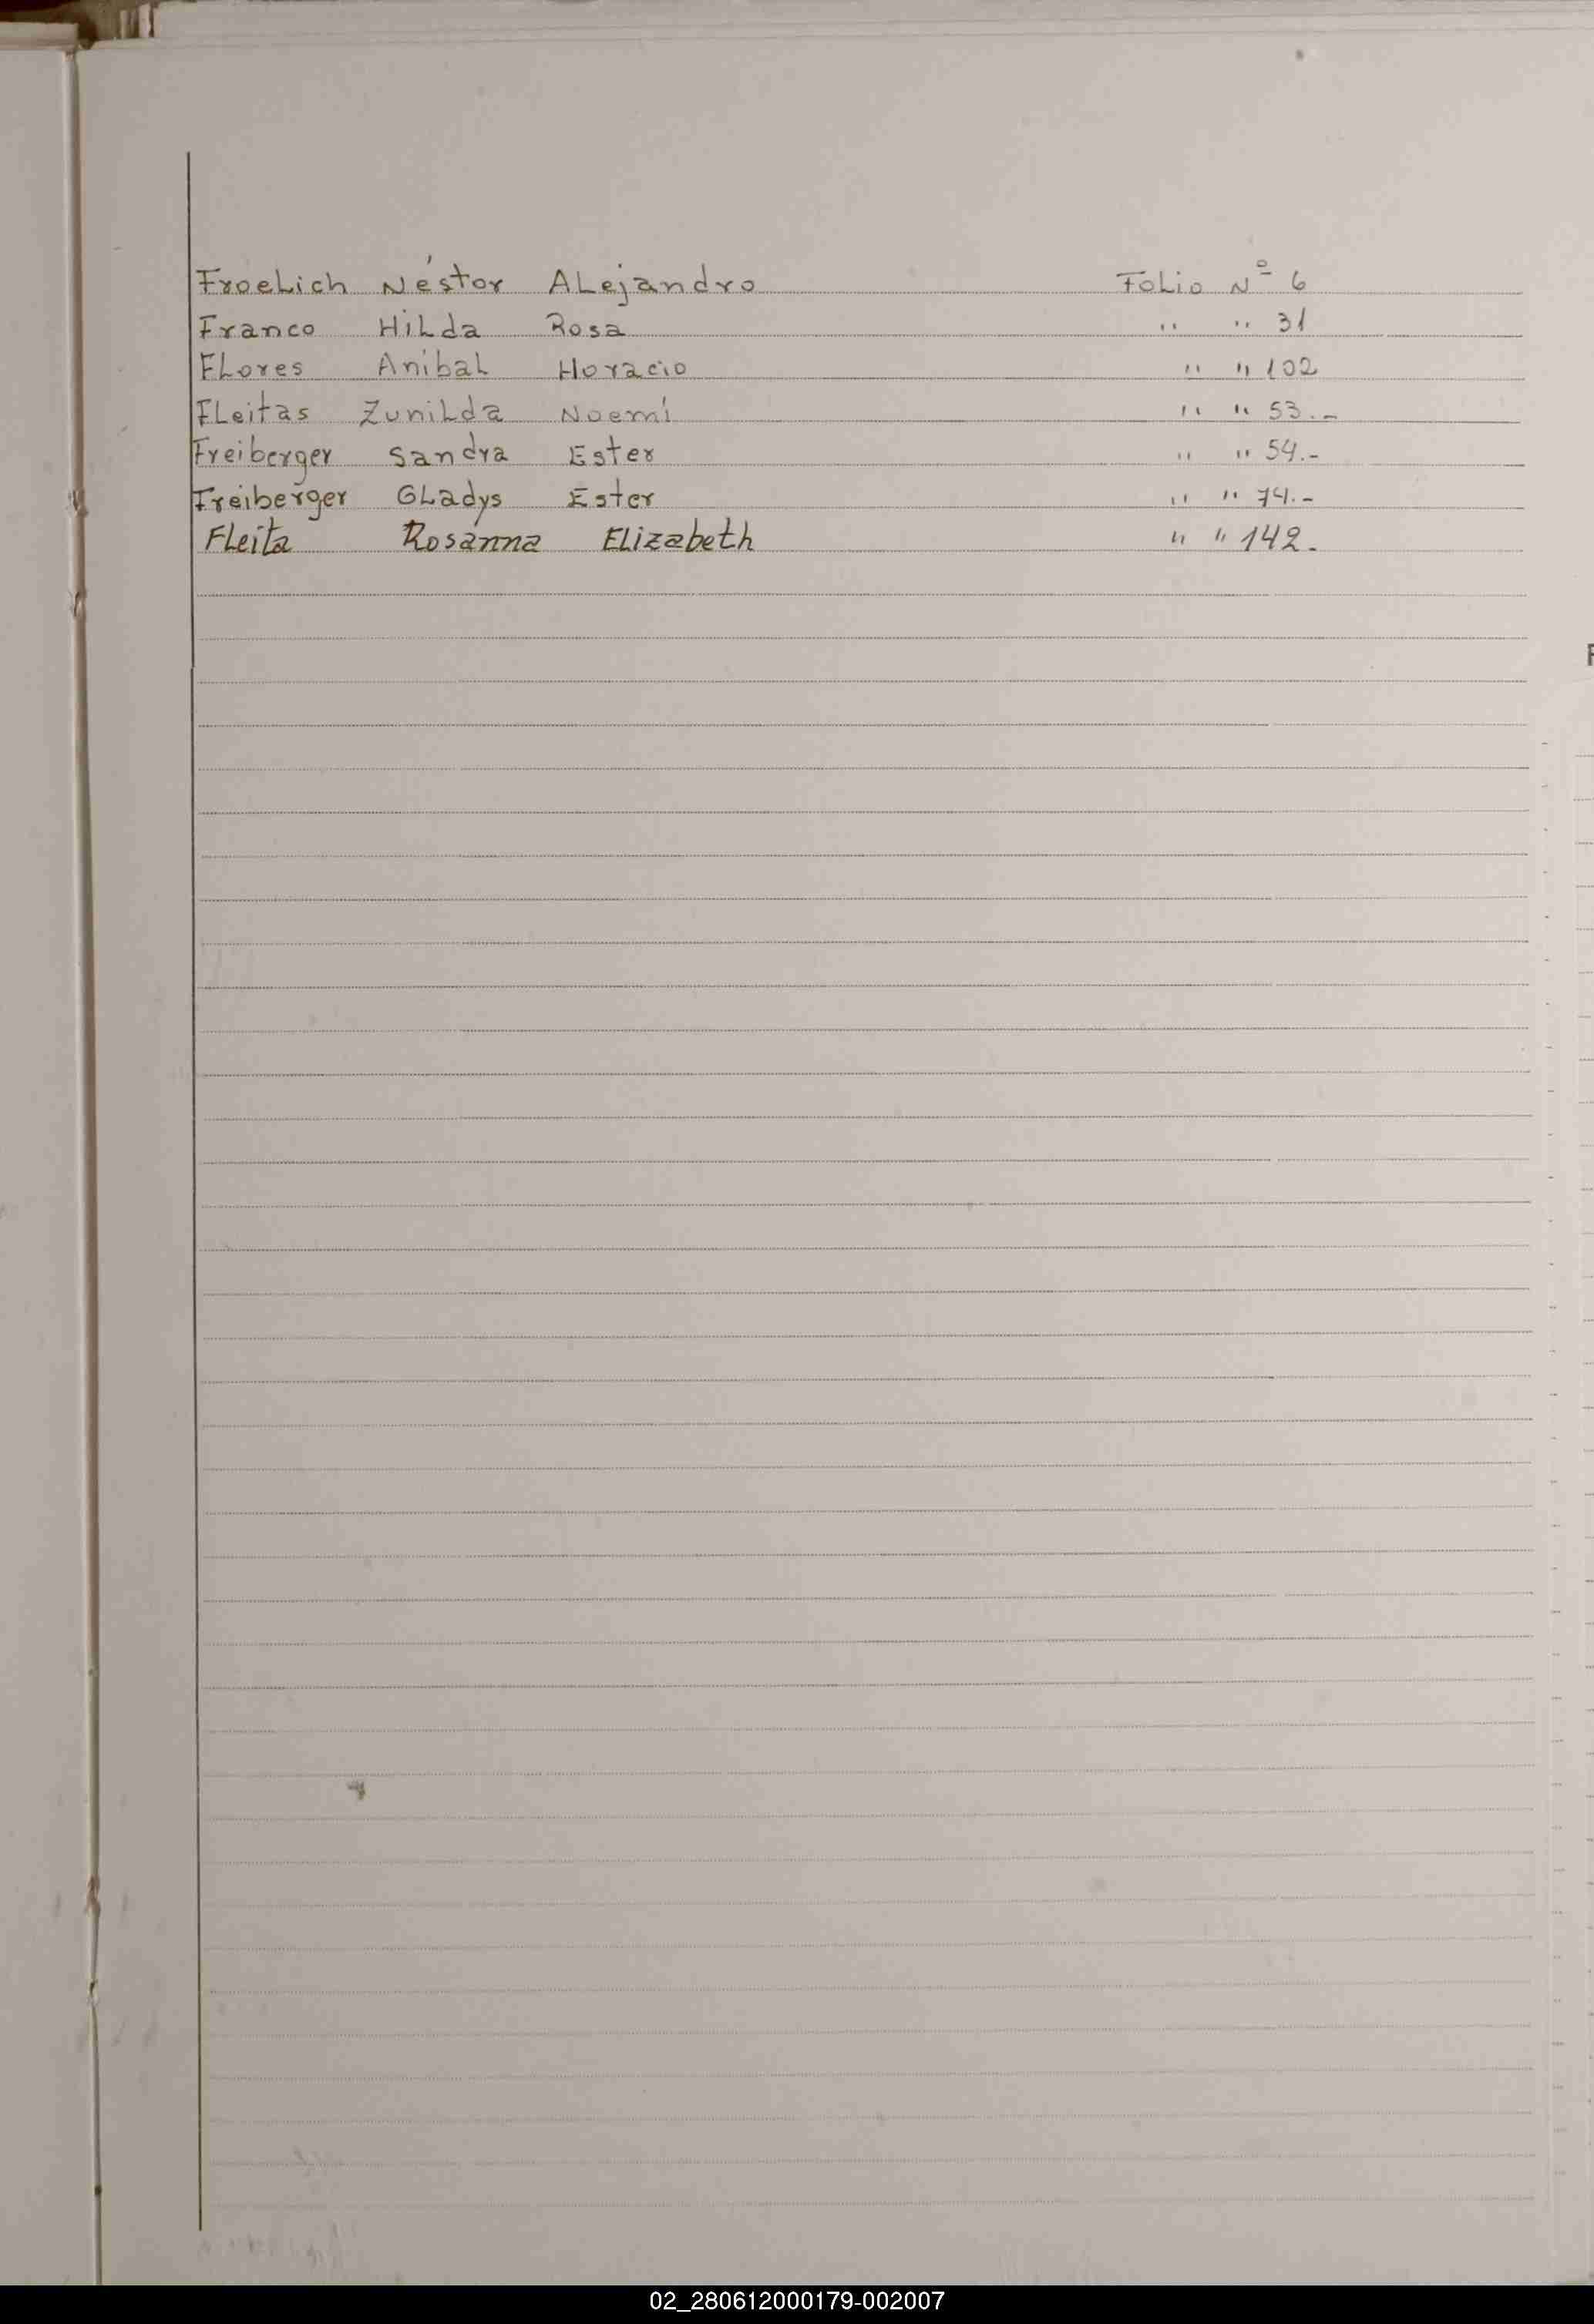 Froelich Néstor Alejandro Folio Nº 6
Franco Hilda Rosa " " 31
Flores Anibal Horacio " " 102
Fleitas Zunilda Noemí " " 53.-
Freiberger Sandra Ester " " 54.-
Freiberger Gladys Ester " " 74.-
Fleita Rosanna Elizabeth " " 142.
02_280612000179-002007